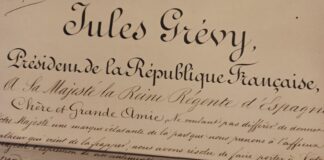 Jules Grévy,
Président de la République Française,
A Sa Majesté la Reine Régente d'Espagne
Chère et Grande Amie, Ne voulant pas différer de donner
Votre Majesté une marque éclatante de la part que nous prenons à l'affreux
malheur qui vient de la frapper, nous avons résolu de faire